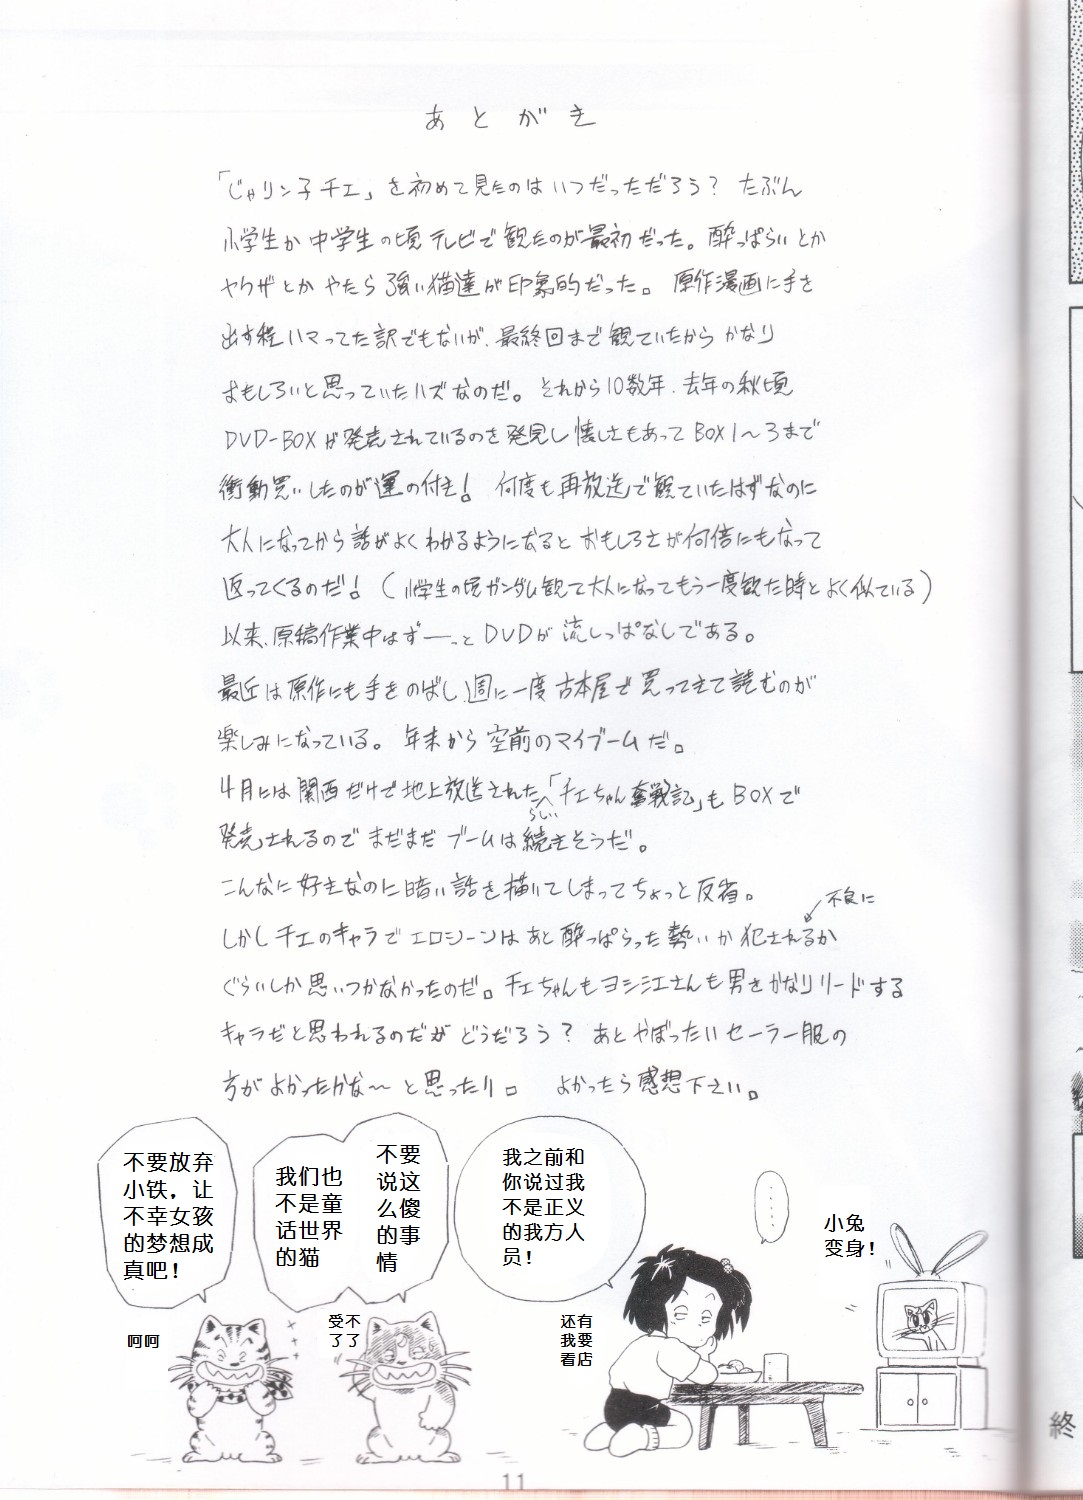 あとがき
「じゃリン子チエ」を初めて見たのはいつだっただろう？ たぶん
小学生か中学生の頃テレビで観たのが最初だった。酔っぱらいとか
ヤクザとかやたら強い猫達が印象的だった。原作漫画に手を
出す程ハマってた訳でもないが、最終回まで観ていたからかなり
おもしろいと思っていたハズなのだ。それから10数年、去年の秋頃
DVD-BOXが発売されているのを発見し懐しさもあってBOX1～3まで
衝動買いしたのが運の付き！ 何度も再放送で観ていたはずなのに
大人になってから話がよくわかるようになるとおもしろさが何倍にもなって
返ってくるのだ！（小学生の頃ガンダム観て大人になってもう一度観た時とよく似ている）
以来、原稿作業中はずーーっとDVDが流しっぱなしである。
最近は原作にも手をのばし、週に一度古本屋で買ってきて読むのが
楽しみになっている。年末から空前のマイブームだ。
4月には関西だけで地上放送されたらしい「チエちゃん奮戦記」もBOXで
発売されるのでまだまだブームは続きそうだ。
こんなに好きなのに暗い話を描いてしまってちょっと反省。
しかしチエのキャラでエロシーンはあと酔っぱらった勢いか不良に犯されるか
ぐらいしか思いつかなかったのだ。チエちゃんもヨシ江さんも男をかなりリードする
キャラだと思われるのだがどうだろう？ あとやぼったいセーラー服の
方がよかったかな～と思ったり。 よかったら感想下さい。
不要放弃
小铁，让
不幸女孩
的梦想成
真吧！
呵呵
不要
说这
么傻
的事
情
我们也
不是童
话世界
的猫
受不
了了
我之前和
你说过我
不是正义
的我方人
员！
还有
我要
看店
……
小兔
变身！
11
終